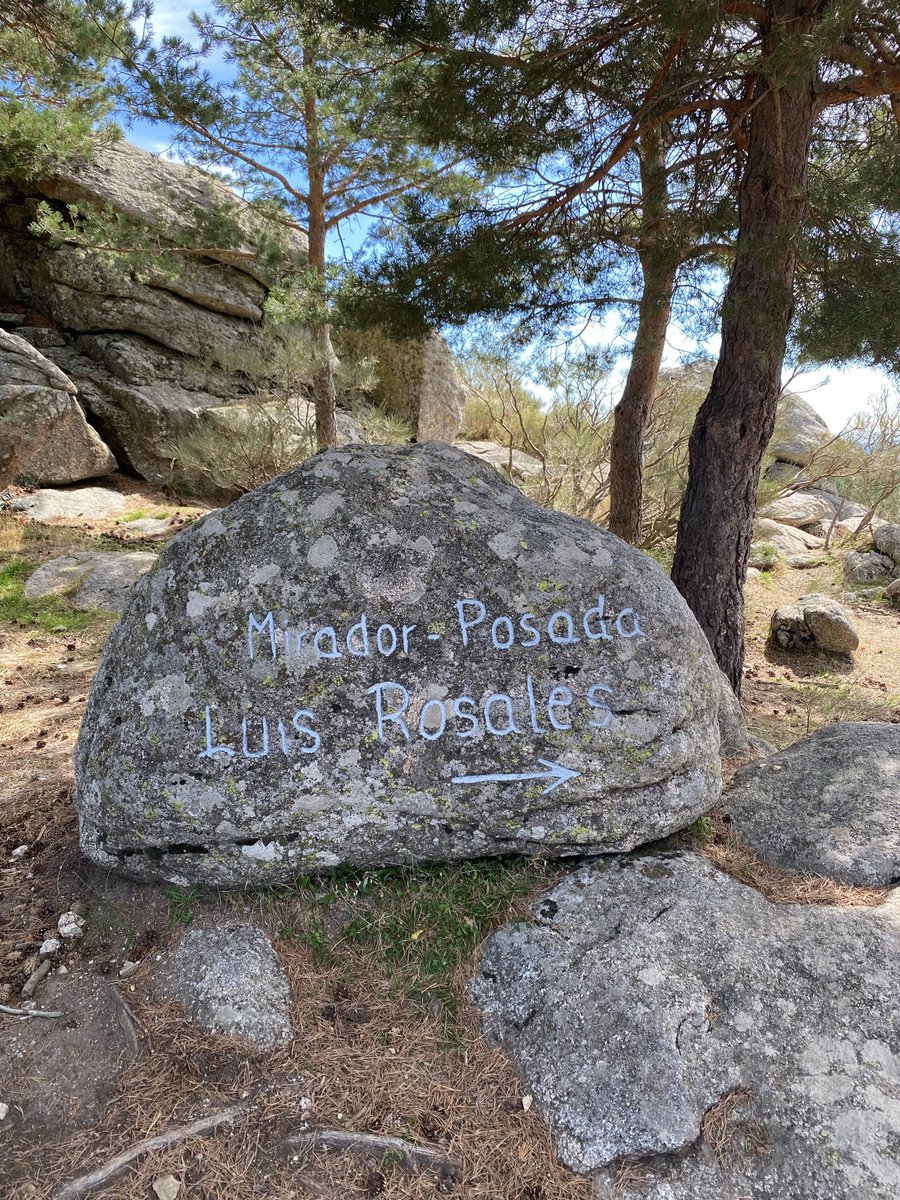 Mirador - Posada
Luis Rosales